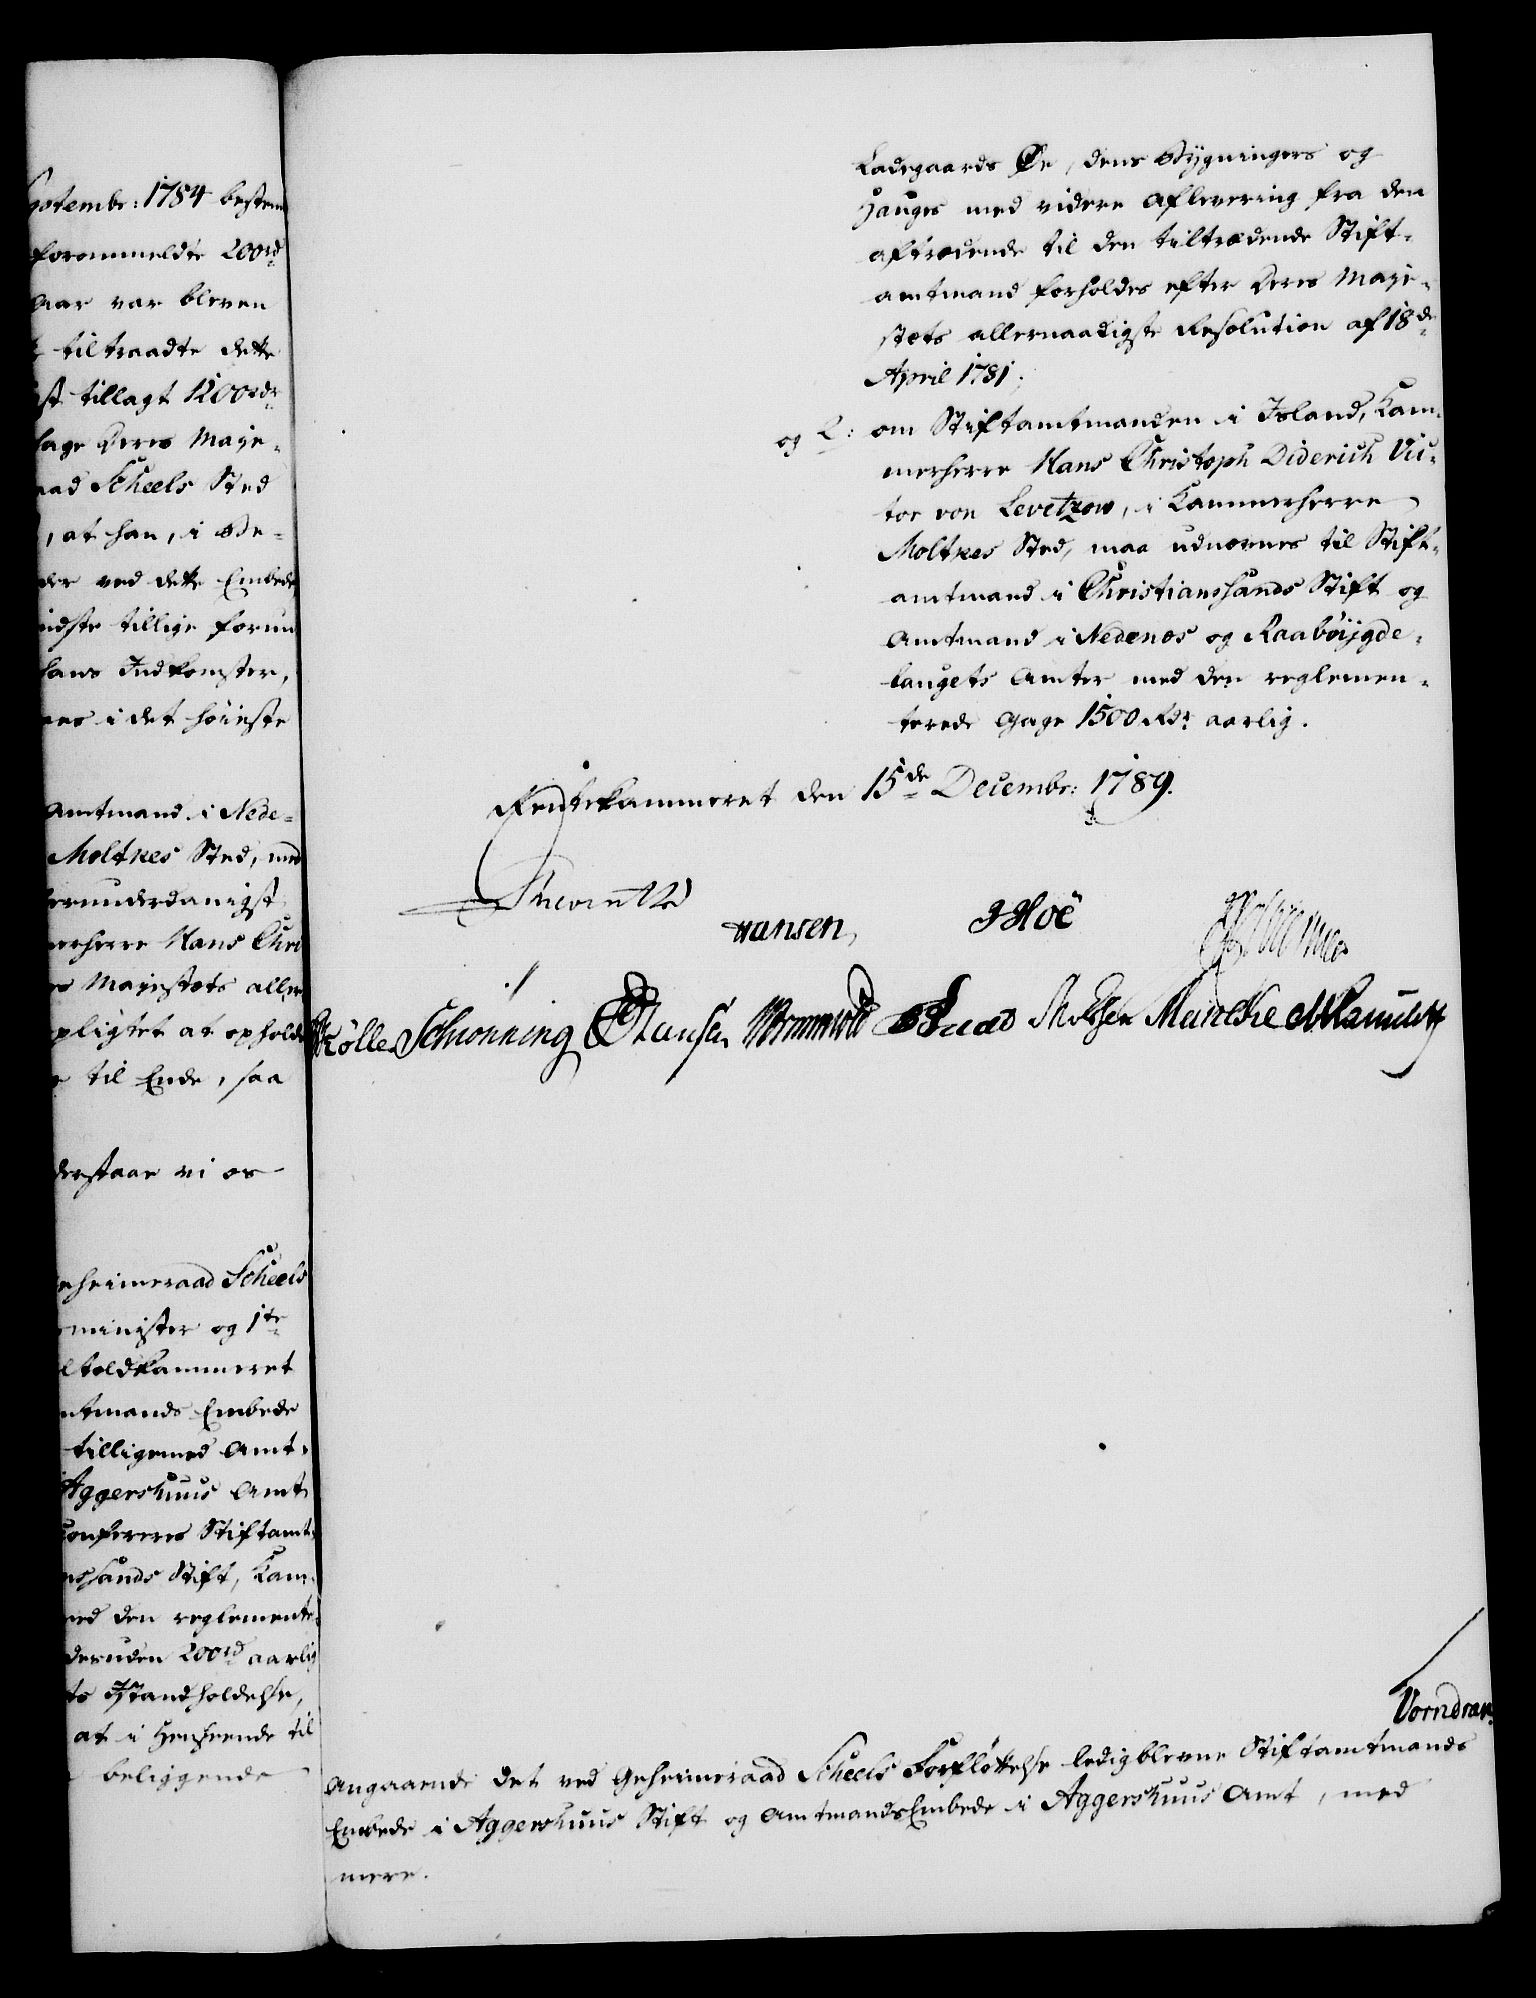 Septembr: 1784 bestem
forommeldte 200rd
Aar var bleven
tiltraadte dette
tillagt 1200rdr
Deres Maje-
Scheels Sted
, at han, i Be-
ved dette Embede
tillige forun
hans Indkomster,
i det höieste
Amtmand i Nede-
Moltkes Sted, med
Hans Chri
Majestæts aller
at opholde
til Ende, saa
vi os
Geheimeraad Scheels
minister og 1te
toldkammeret
Embede
tilligemed Amt-
Aggershuus Amt
confereres Stiftamt-
Stift, Kam-
den reglemente-
200rd aarlig
Istandholdelse,
at i Henseende til
beliggende
Ladegaards Øe, dens Bygningers og
Hauges med videre Aflevering fra den
aftrædende til den tiltrædende Stift-
amtmand forholdes efter Deres Maje-
stæts allernaadigste Resolution af 18de
April 1781;
og 2: om Stiftamtmanden i Island, Kam-
merherre Hans Christoph Diderich Vic-
tor von Levetzow, i Kammerherre
Moltkes Sted, maa udnævnes til Stift-
amtmand i Christianssands Stift og
Amtmand i Nedenæs og Raaböijgde-
laugets Amter med den reglemen-
terede Gage 1500 Rdr aarlig.
Rentekammeret den 15de Decembr: 1789.
Hansen, JHoë
Schionning Clausen Wormskiold
Vorndran.
Angaaende det ved Geheimeraad Scheels Forfløttelse ledigblevne Stiftamtmands
Embede i Aggershuus Stift og AmtmandsEmbede i Aggershuus Amt, med
mere.